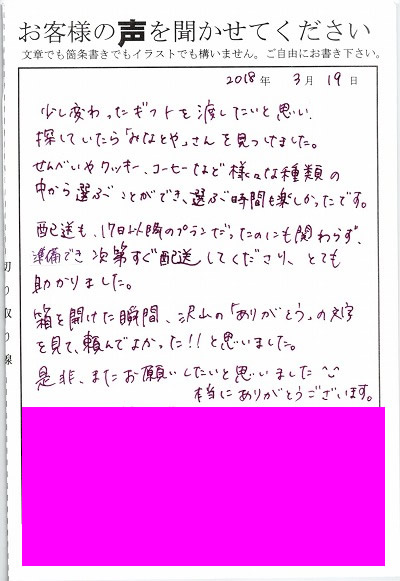 お客様の声を聞かせてください
文章でも箇条書きでもイラストでも構いません。ご自由にお書き下さい。
2018年 3月 19日
少し変わったギフトを渡したいと思い、
探していたら「みなとや」さんを見つけました。
せんべいやクッキー、コーヒーなど様々な種類の
中から選ぶことができ、選ぶ時間も楽しかったです。
配送も、17日以降のプランだったのにも関わらず、
準備でき次第すぐ配送してくださり、とても
助かりました。
箱を開けた瞬間、沢山の「ありがとう」の文字
を見て、頼んでよかった!!と思いました。
是非、またお願いしたいと思いました
本当にありがとうございます。
切り取り線